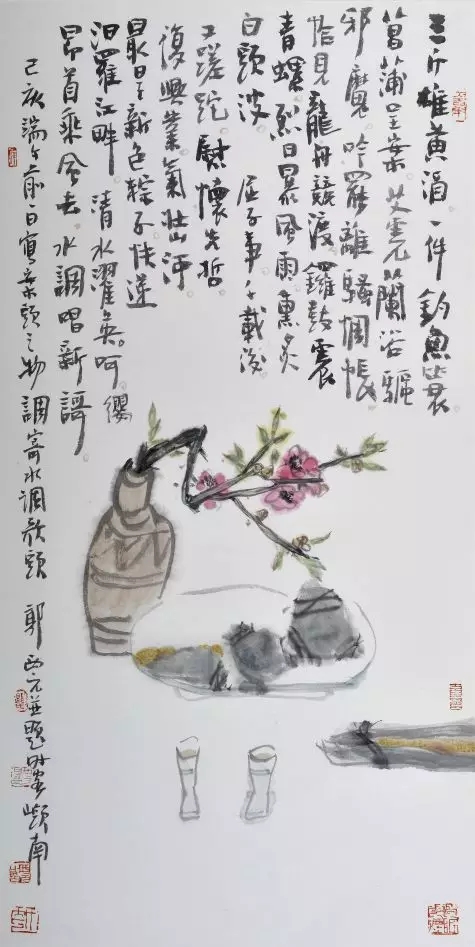 三斤雄黃酒一件釣魚蓑
菖蒲呈案艾虎蘭浴驅
邪魔吟罷離騷惆悵
恰見龍舟競渡鑼鼓震
青螺烈日暴風雨熏炙
白頭波 屈子事千載後
蹉跎慰懷先哲
復興業氣壯山河
最是新色粽子快遞
汨羅江畔清水濯呵纓
昂首乘風去水調唱新謌
己亥端午前日寫案頭之物調寄水調歌頭 郭西元並題時客嶺南